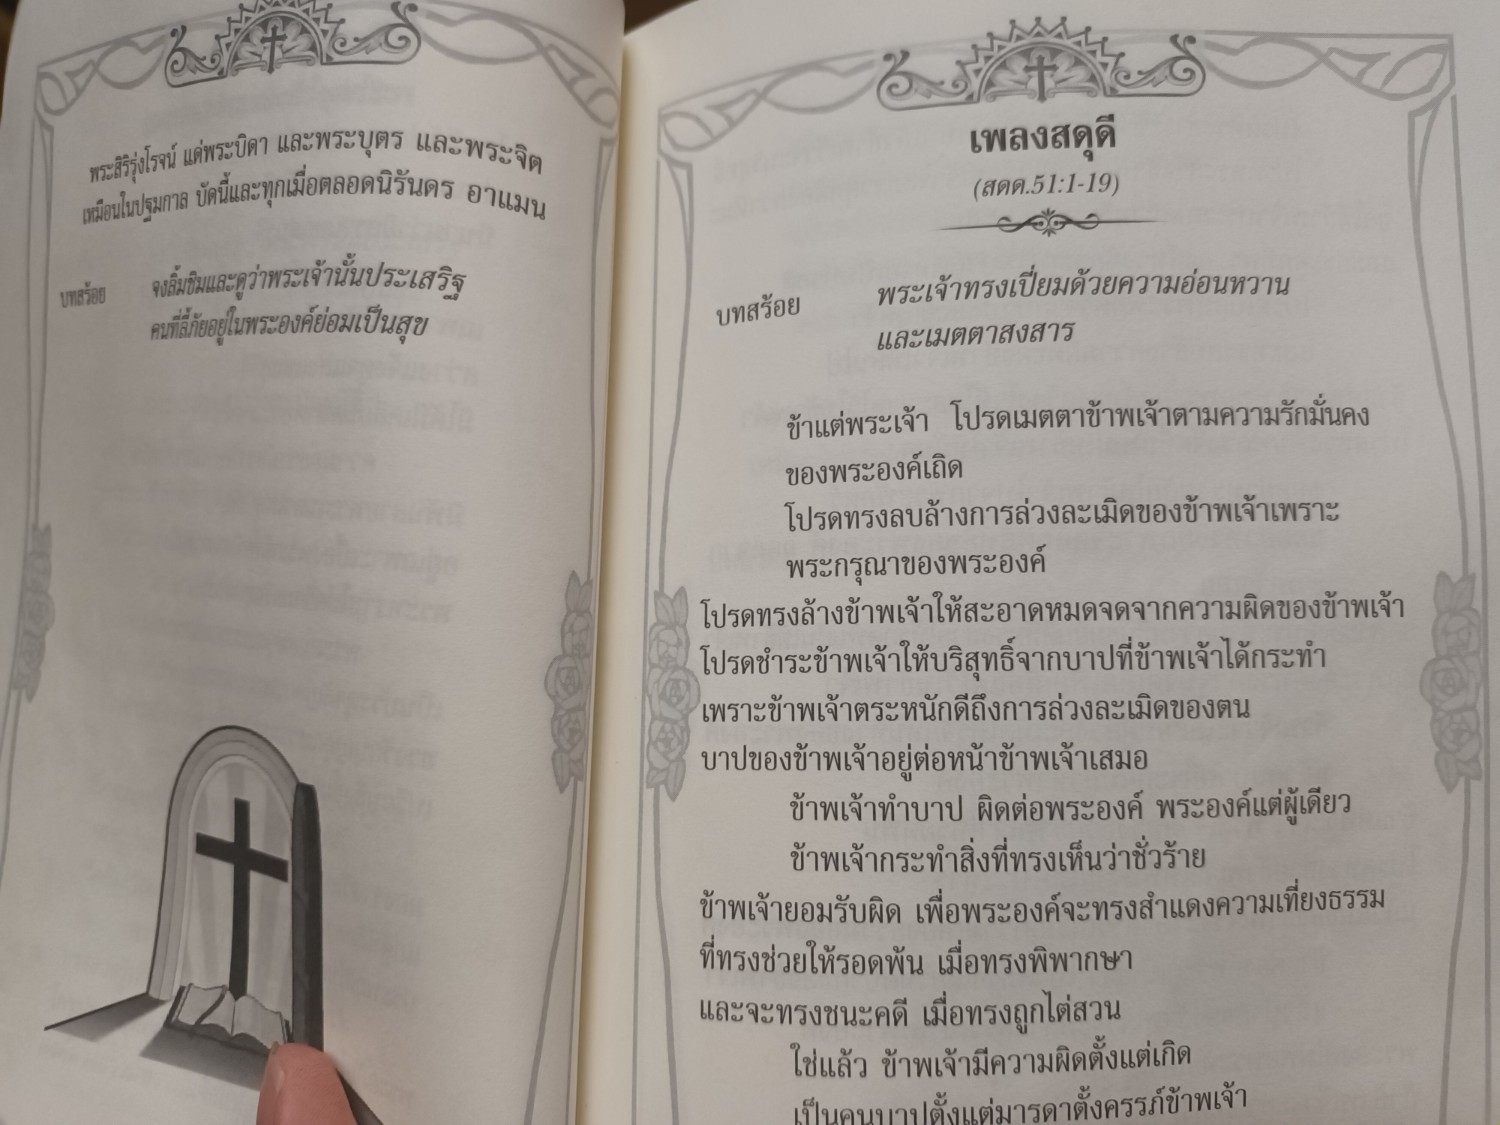 พระสิริรุ่งโรจน์ แด่พระบิดา และพระบุตร และพระจิต
เหมือนในปฐมกาล บัดนี้และทุกเมื่อตลอดนิรันดร อาแมน
บทสร้อย จงลิ้มชิมและดูว่าพระเจ้านั้นประเสริฐ
คนที่ลี้ภัยอยู่ในพระองค์ย่อมเป็นสุข
เพลงสดุดี
(สดด.51:1-19)
บทสร้อย พระเจ้าทรงเปี่ยมด้วยความอ่อนหวาน
และเมตตาสงสาร
ข้าแต่พระเจ้า โปรดเมตตาข้าพเจ้าตามความรักมั่นคง
ของพระองค์เถิด
โปรดทรงลบล้างการล่วงละเมิดของข้าพเจ้าเพราะ
พระกรุณาของพระองค์
โปรดทรงล้างข้าพเจ้าให้สะอาดหมดจดจากความผิดของข้าพเจ้า
โปรดชำระข้าพเจ้าให้บริสุทธิ์จากบาปที่ข้าพเจ้าได้กระทำ
เพราะข้าพเจ้าตระหนักดีถึงการล่วงละเมิดของตน
บาปของข้าพเจ้าอยู่ต่อหน้าข้าพเจ้าเสมอ
ข้าพเจ้าทำบาป ผิดต่อพระองค์ พระองค์แต่ผู้เดียว
ข้าพเจ้ากระทำสิ่งที่ทรงเห็นว่าชั่วร้าย
ข้าพเจ้ายอมรับผิด เพื่อพระองค์จะทรงสำแดงความเที่ยงธรรม
ที่ทรงช่วยให้รอดพ้น เมื่อทรงพิพากษา
และจะทรงชนะคดี เมื่อทรงถูกไต่สวน
ใช่แล้ว ข้าพเจ้ามีความผิดตั้งแต่เกิด
เป็นคนบาปตั้งแต่มารดาตั้งครรภ์ข้าพเจ้า